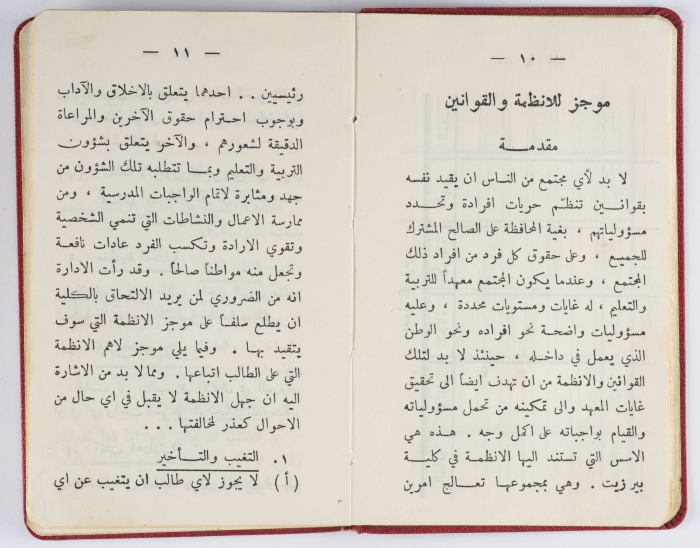 — ١٠ —
موجز للانظمة والقوانين
مقدمة
لا بد لأي مجتمع من الناس ان يقيد نفسه
بقوانين تنظّم حريات افرادة وتحدد
مسؤولياتهم ، بغية المحافظة على الصالح المشترك
للجميع ، وعلى حقوق كل فرد من افراد ذلك
المجتمع ، وعندما يكون المجتمع معهداً للتربية
والتعليم ، له غايات ومستويات محددة ، وعليه
مسؤوليات واضحة نحو افراده ونحو الوطن
الذي يعمل في داخله ، حينئذ لا بد لتلك
القوانين والانظمة من ان تهدف ايضاً الى تحقيق
غايات المعهد والى تمكينه من تحمل مسؤولياته
والقيام بواجباته على اكمل وجه . هذه هي
الاسس التي تستند اليها الانظمة في كلية
بيرزيت . وهي بمجموعها تعالج امرين
— ١١ —
رئيسيين . . احدهما يتعلق بالاخلاق والآداب
وبوجوب احترام حقوق الآخرين والمراعاة
الدقيقة لشعورهم ، والآخر يتعلق بشؤون
التربية والتعليم وبما تتطلبه تلك الشؤون من
جهد ومثابرة لاتمام الواجبات المدرسية ، ومن
ممارسة الاعمال والنشاطات التي تنمي الشخصية
وتقوي الارادة وتكسب الفرد عادات نافعة
وتجعل منه مواطناً صالحاً . وقد رأت الادارة
انه من الضروري لمن يريد الالتحاق بالكلية
ان يطلع سلفاً على موجز الانظمة التي سوف
يتقيد بها . وفيما يلي موجز لاهم الانظمة
التي على الطالب اتباعها . ومما لا بد من الاشارة
اليه ان جهل الانظمة لا يقبل في اي حال من
الاحوال كعذر لمخالفتها . . .
١. التغيب والتأخير
(أ) لا يجوز لاي طالب ان يتغيب عن اي